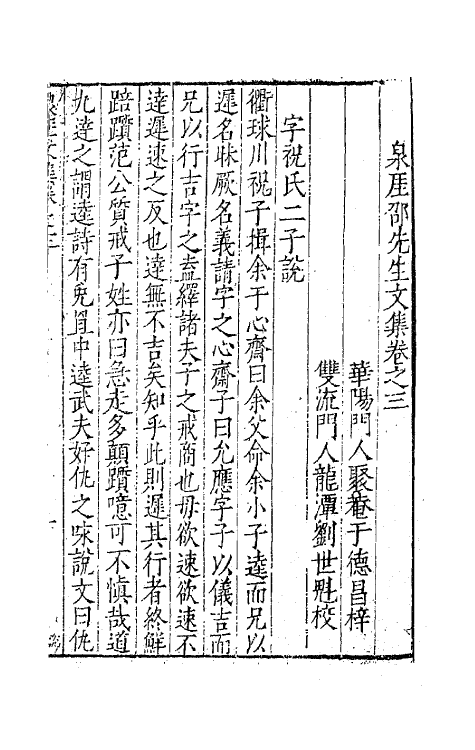 泉厓邵先生文集卷之三
華陽門人聚菴于德昌梓
雙流門人龍潭劉世魁校
字祝氏二子說
衢球川祝子揖余于心齋曰余父命余小子逵而兄以
遲名昧厥名義請字之心齋子曰允應字子以儀吉而
兄以行吉字之盍繹諸夫子之戒商也毋欲速欲速不
達遲速之反也達無不吉矣知乎此則遲其行者終鮮
踣躓范公質戒子姓亦曰急走多顛躓噫可不慎哉道
九達之謂逵詩有兎罝中逵武夫好仇之咏說文曰仇